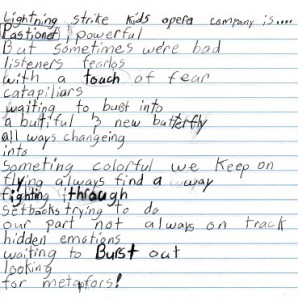 Lightning strike kids opera company is....
Pastionet, powerful
But sometimes we're bad
listeners fearlos
with a touch of fear
catapiliars
waiting to bust into
a butiful & new butterfly
all ways changeing
into
someting colorful we keep on
flying always find a way
fighting through
setbacks trying to do
our part not always on track
hidden emotions
waiting to Burst out
looking
for metapfors!